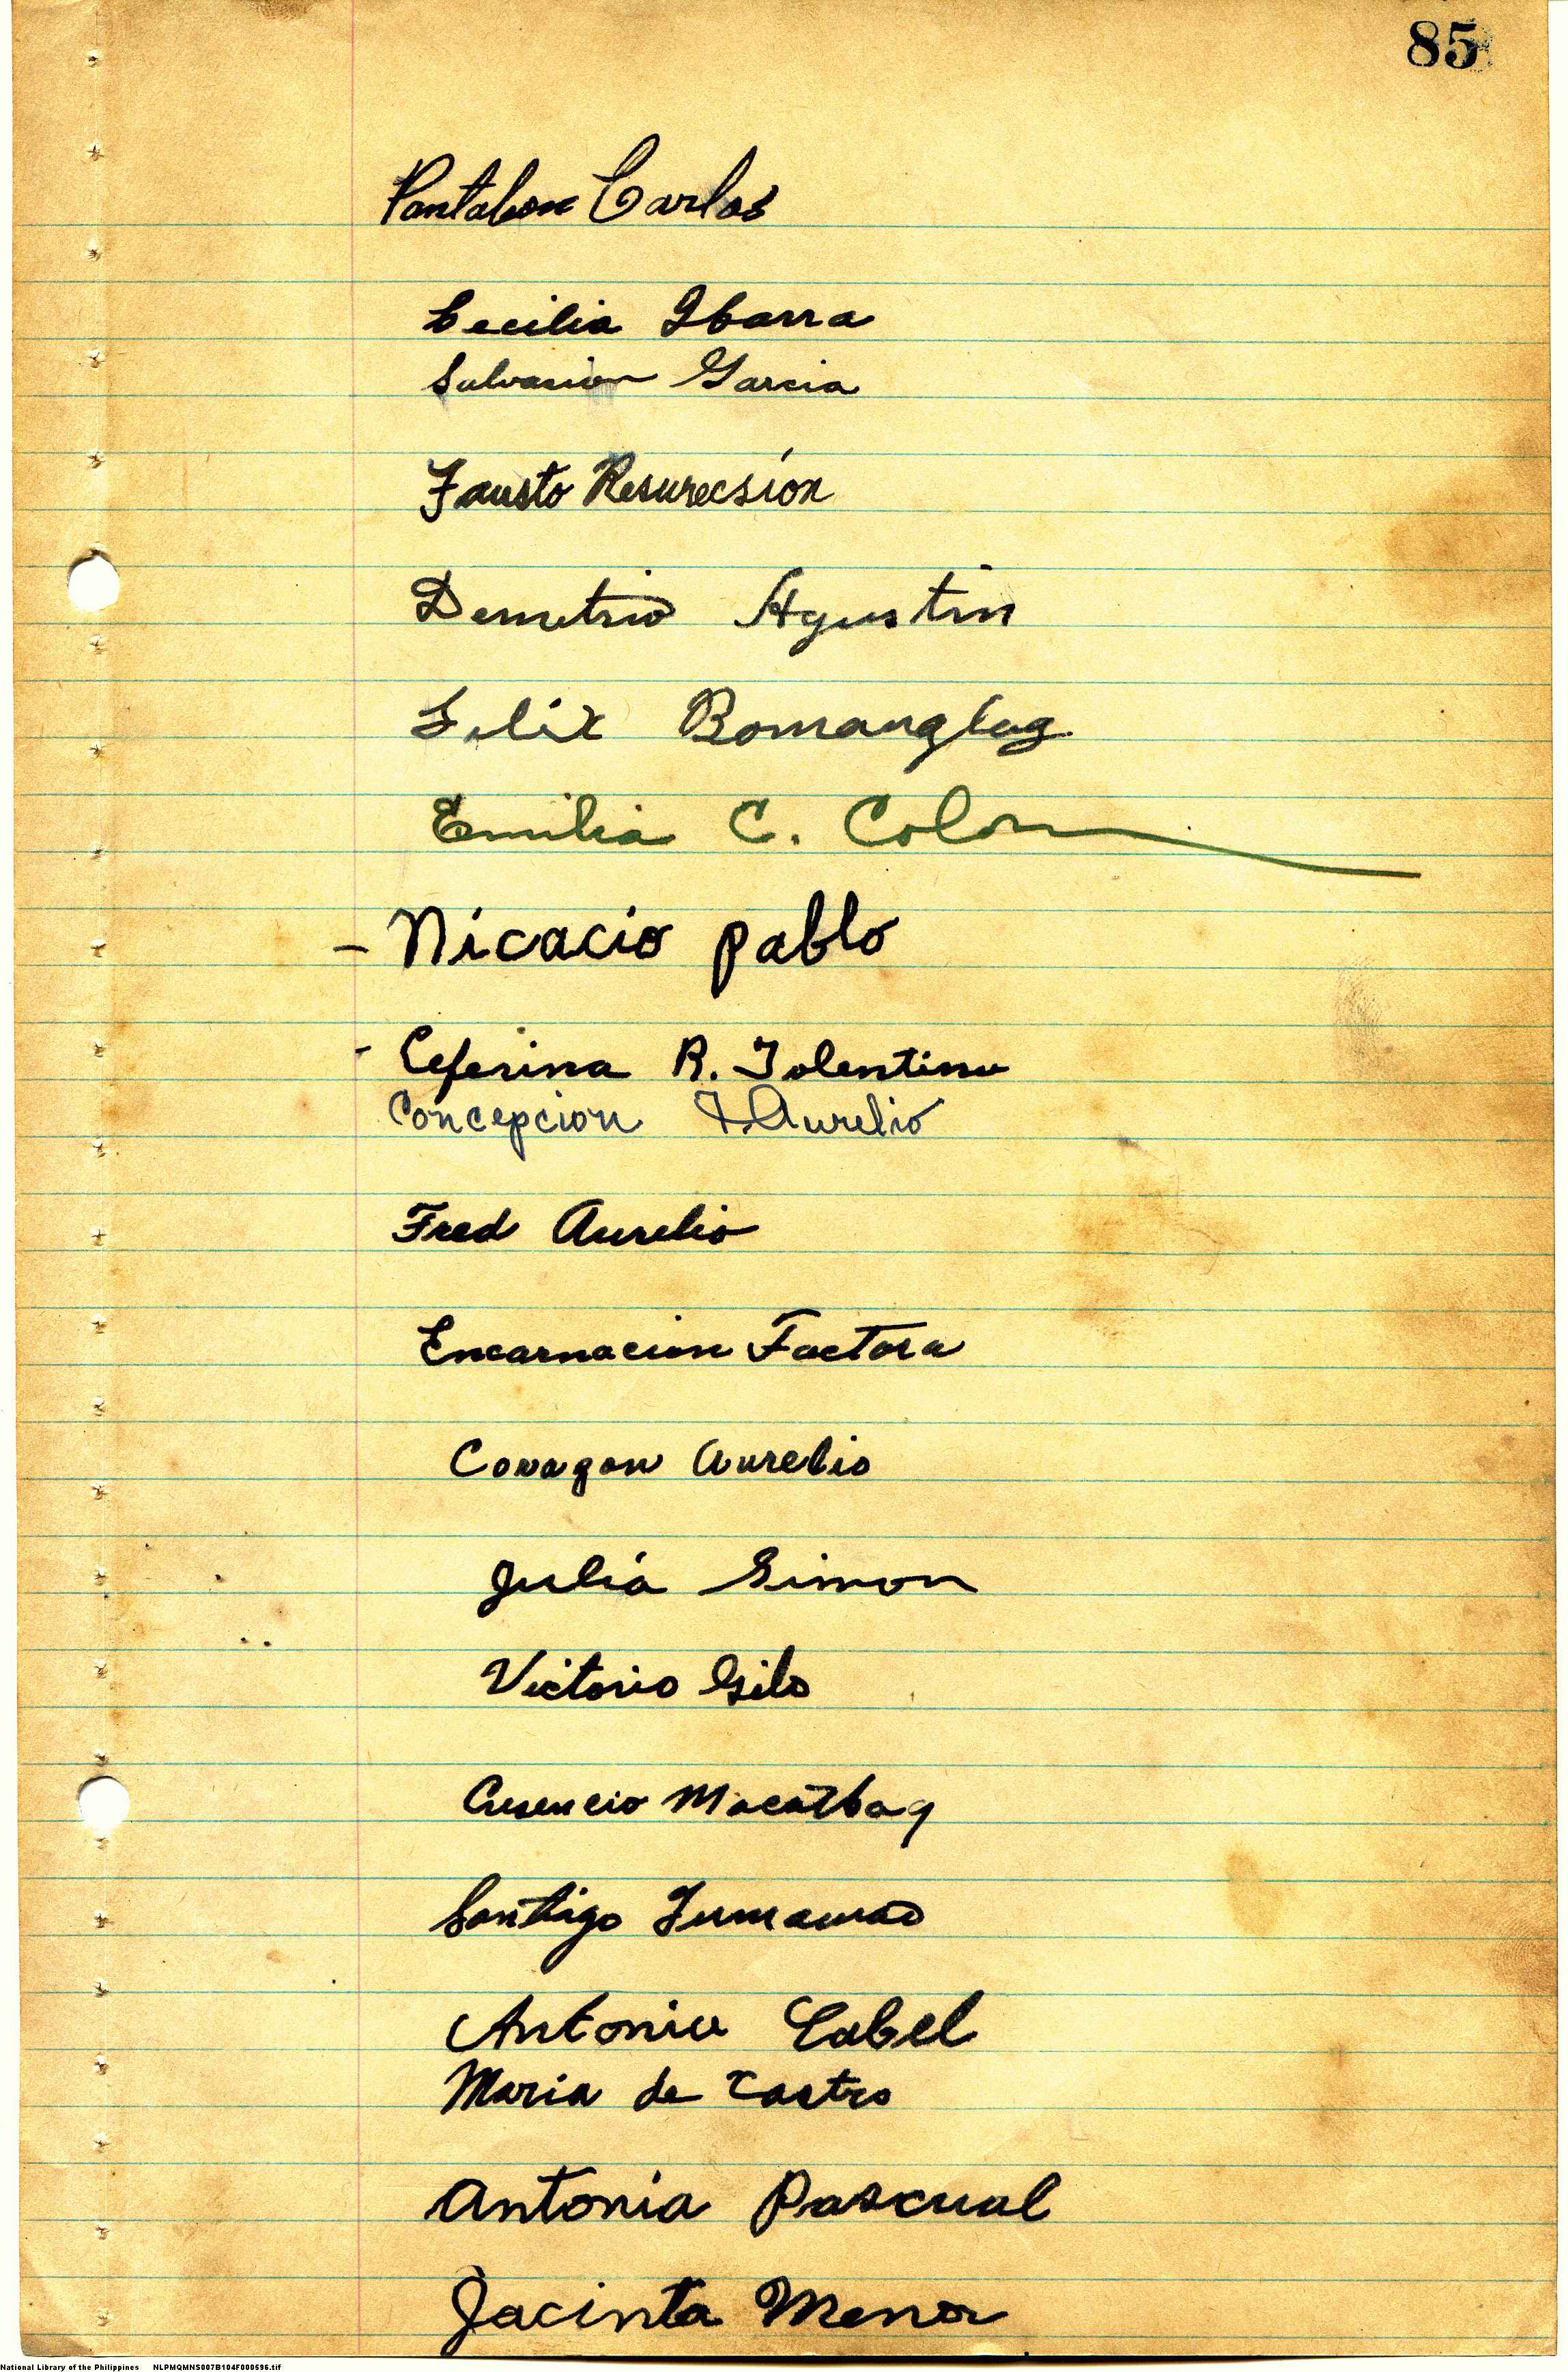 85
Pantaleon Carlos
Cecilia Ibarra
Salvacion Garcia
Fausto Resurecsion
Demetrio Agustin
Felix Bomanglag
Emilia C. Colon
- Nicacio pablo
- Ceferina R. Tolentino
Concepcion F. Aurelio
Fred Aurelio
Encarnacion Factora
Corazon Aurelio
Julia Simon
Victorio Gilo
Cresencio Macatbag
Santiago
Antonio Cabel
Maria de Castro
Antonia Pascual
Jacinta Menor
National Library of the Philippines NLPMQMNS007B104F000596.tif